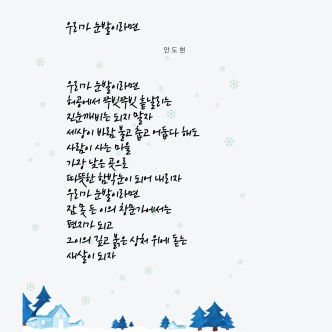 우리가 눈발이라면
안도현
우리가 눈발이라면
허공에서 쭈빗쭈빗 흩날리는
진눈깨비는 되지 말자
세상이 바람 불고 춥고 어둡다 해도
사람이 사는 마을
가장 낮은 곳으로
따뜻한 함박눈이 되어 내리자
우리가 눈발이라면
잠 못 든 이의 창문가에서는
편지가 되고
그이의 깊고 붉은 상처 위에 돋는
새살이 되자